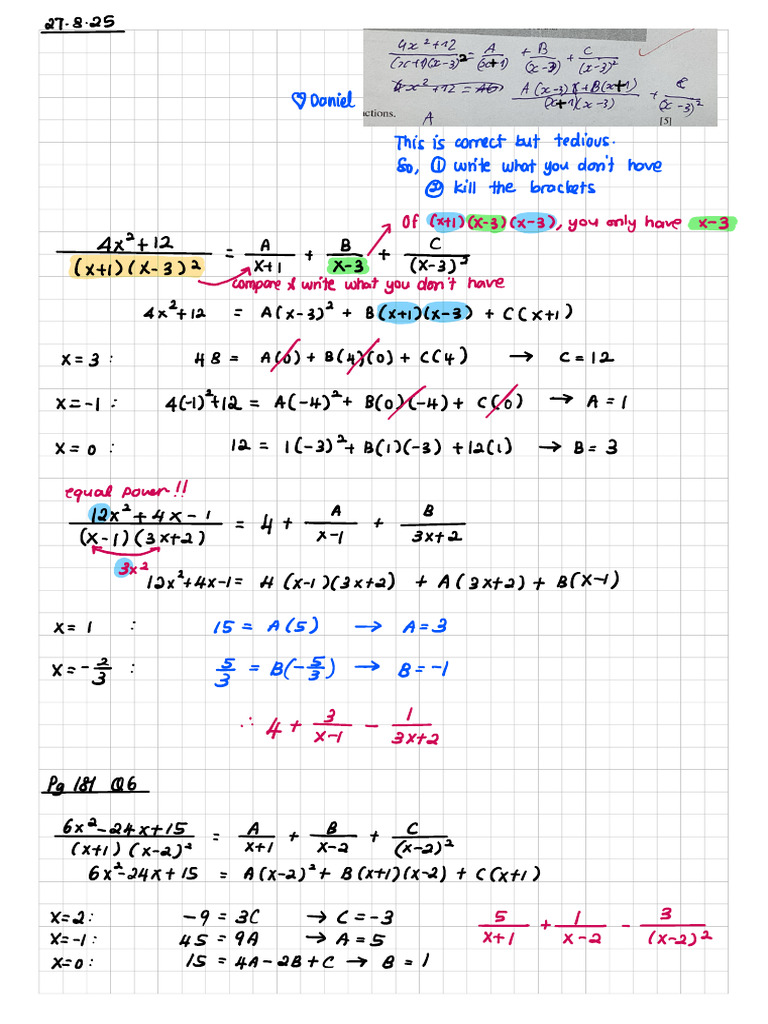 27.8.25
4x²+12/(x+1)(x-3)² = A/(x+1) + B/(x-3) + C/(x-3)²
4x²+12 = A(x-3)+B(x+1)/(x+1)(x-3) + C/(x-3)²
♡ Daniel
ctions.
A
[5]
This is correct but tedious.
So, ① write what you don't have
② kill the brackets
Of (x+1)(x-3)(x-3), you only have x-3
4x²+12/(x+1)(x-3)² = A/x+1 + B/x-3 + C/(x-3)²
compare & write what you don't have
4x²+12 = A(x-3)² + B(x+1)(x-3) + C(x+1)
x=3: 48 = A(0) + B(4)(0) + C(4) → C=12
x=-1: 4(-1)²+12 = A(-4)² + B(0)(-4) + C(0) → A=1
x=0: 12 = 1(-3)² + B(1)(-3) + 12(1) → B=3
equal power!!
12x²+4x-1/(x-1)(3x+2) = 4 + A/x-1 + B/3x+2
3x²
12x²+4x-1 = 4(x-1)(3x+2) + A(3x+2) + B(x-1)
x=1: 15 = A(5) → A=3
x=-2/3: 5/3 = B(-5/3) → B=-1
∴ 4 + 3/x-1 - 1/3x+2
Pg 181 Q6
6x²-24x+15/(x+1)(x-2)² = A/x+1 + B/x-2 + C/(x-2)²
6x²-24x+15 = A(x-2)² + B(x+1)(x-2) + C(x+1)
x=2: -9 = 3C → C=-3
x=-1: 45 = 9A → A=5
x=0: 15 = 4A-2B+C → B=1
5/x+1 + 1/x-2 - 3/(x-2)²